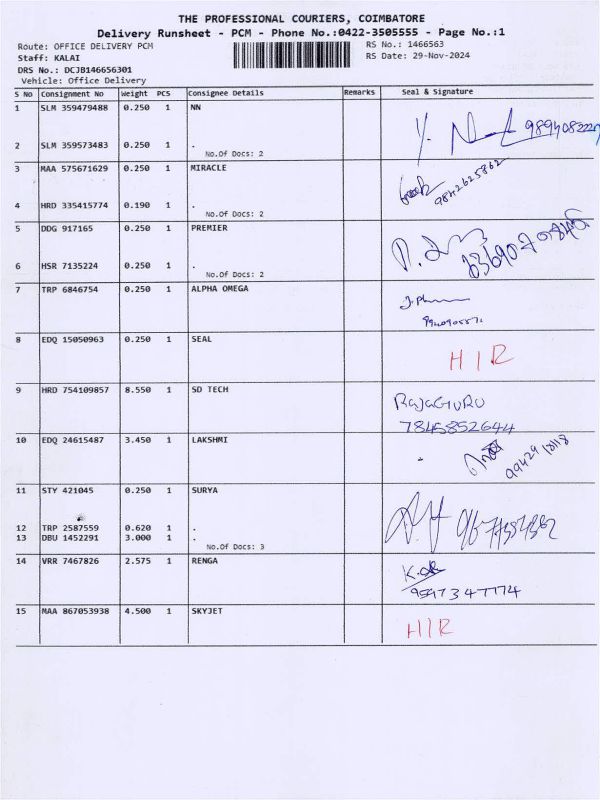 THE PROFESSIONAL COURIERS, COIMBATORE
Delivery Runsheet - PCM - Phone No.:0422-3505555 - Page No.:1
Route: OFFICE DELIVERY PCM
RS No.: 1466563
Staff: KALAI
RS Date: 29-Nov-2024
DRS No.: DCJB146656301
Vehicle: Office Delivery
S No Consignment No Weight PCS Consignee Details Remarks Seal & Signature
1 SLM 359479488 0.250 1 NN
2 SLM 359573483 0.250 1 .
No.Of Docs: 2
3 MAA 575671629 0.250 1 MIRACLE
9842625862
4 HRD 335415774 0.190 1 .
No.Of Docs: 2
5 DDG 917165 0.250 1 PREMIER
6 HSR 7135224 0.250 1 .
No.Of Docs: 2
7 TRP 6846754 0.250 1 ALPHA OMEGA
8 EDQ 15050963 0.250 1 SEAL
HIR
9 HRD 754109857 8.550 1 SD TECH
RAJAGURU
7845852644
10 EDQ 24615487 3.450 1 LAKSHMI
11 STY 421045 0.250 1 SURYA
12 TRP 2587559 0.620 1 .
13 DBU 1452291 3.000 1 .
No.Of Docs: 3
14 VRR 7467826 2.575 1 RENGA
9597347774
15 MAA 867053938 4.500 1 SKYJET
HIR